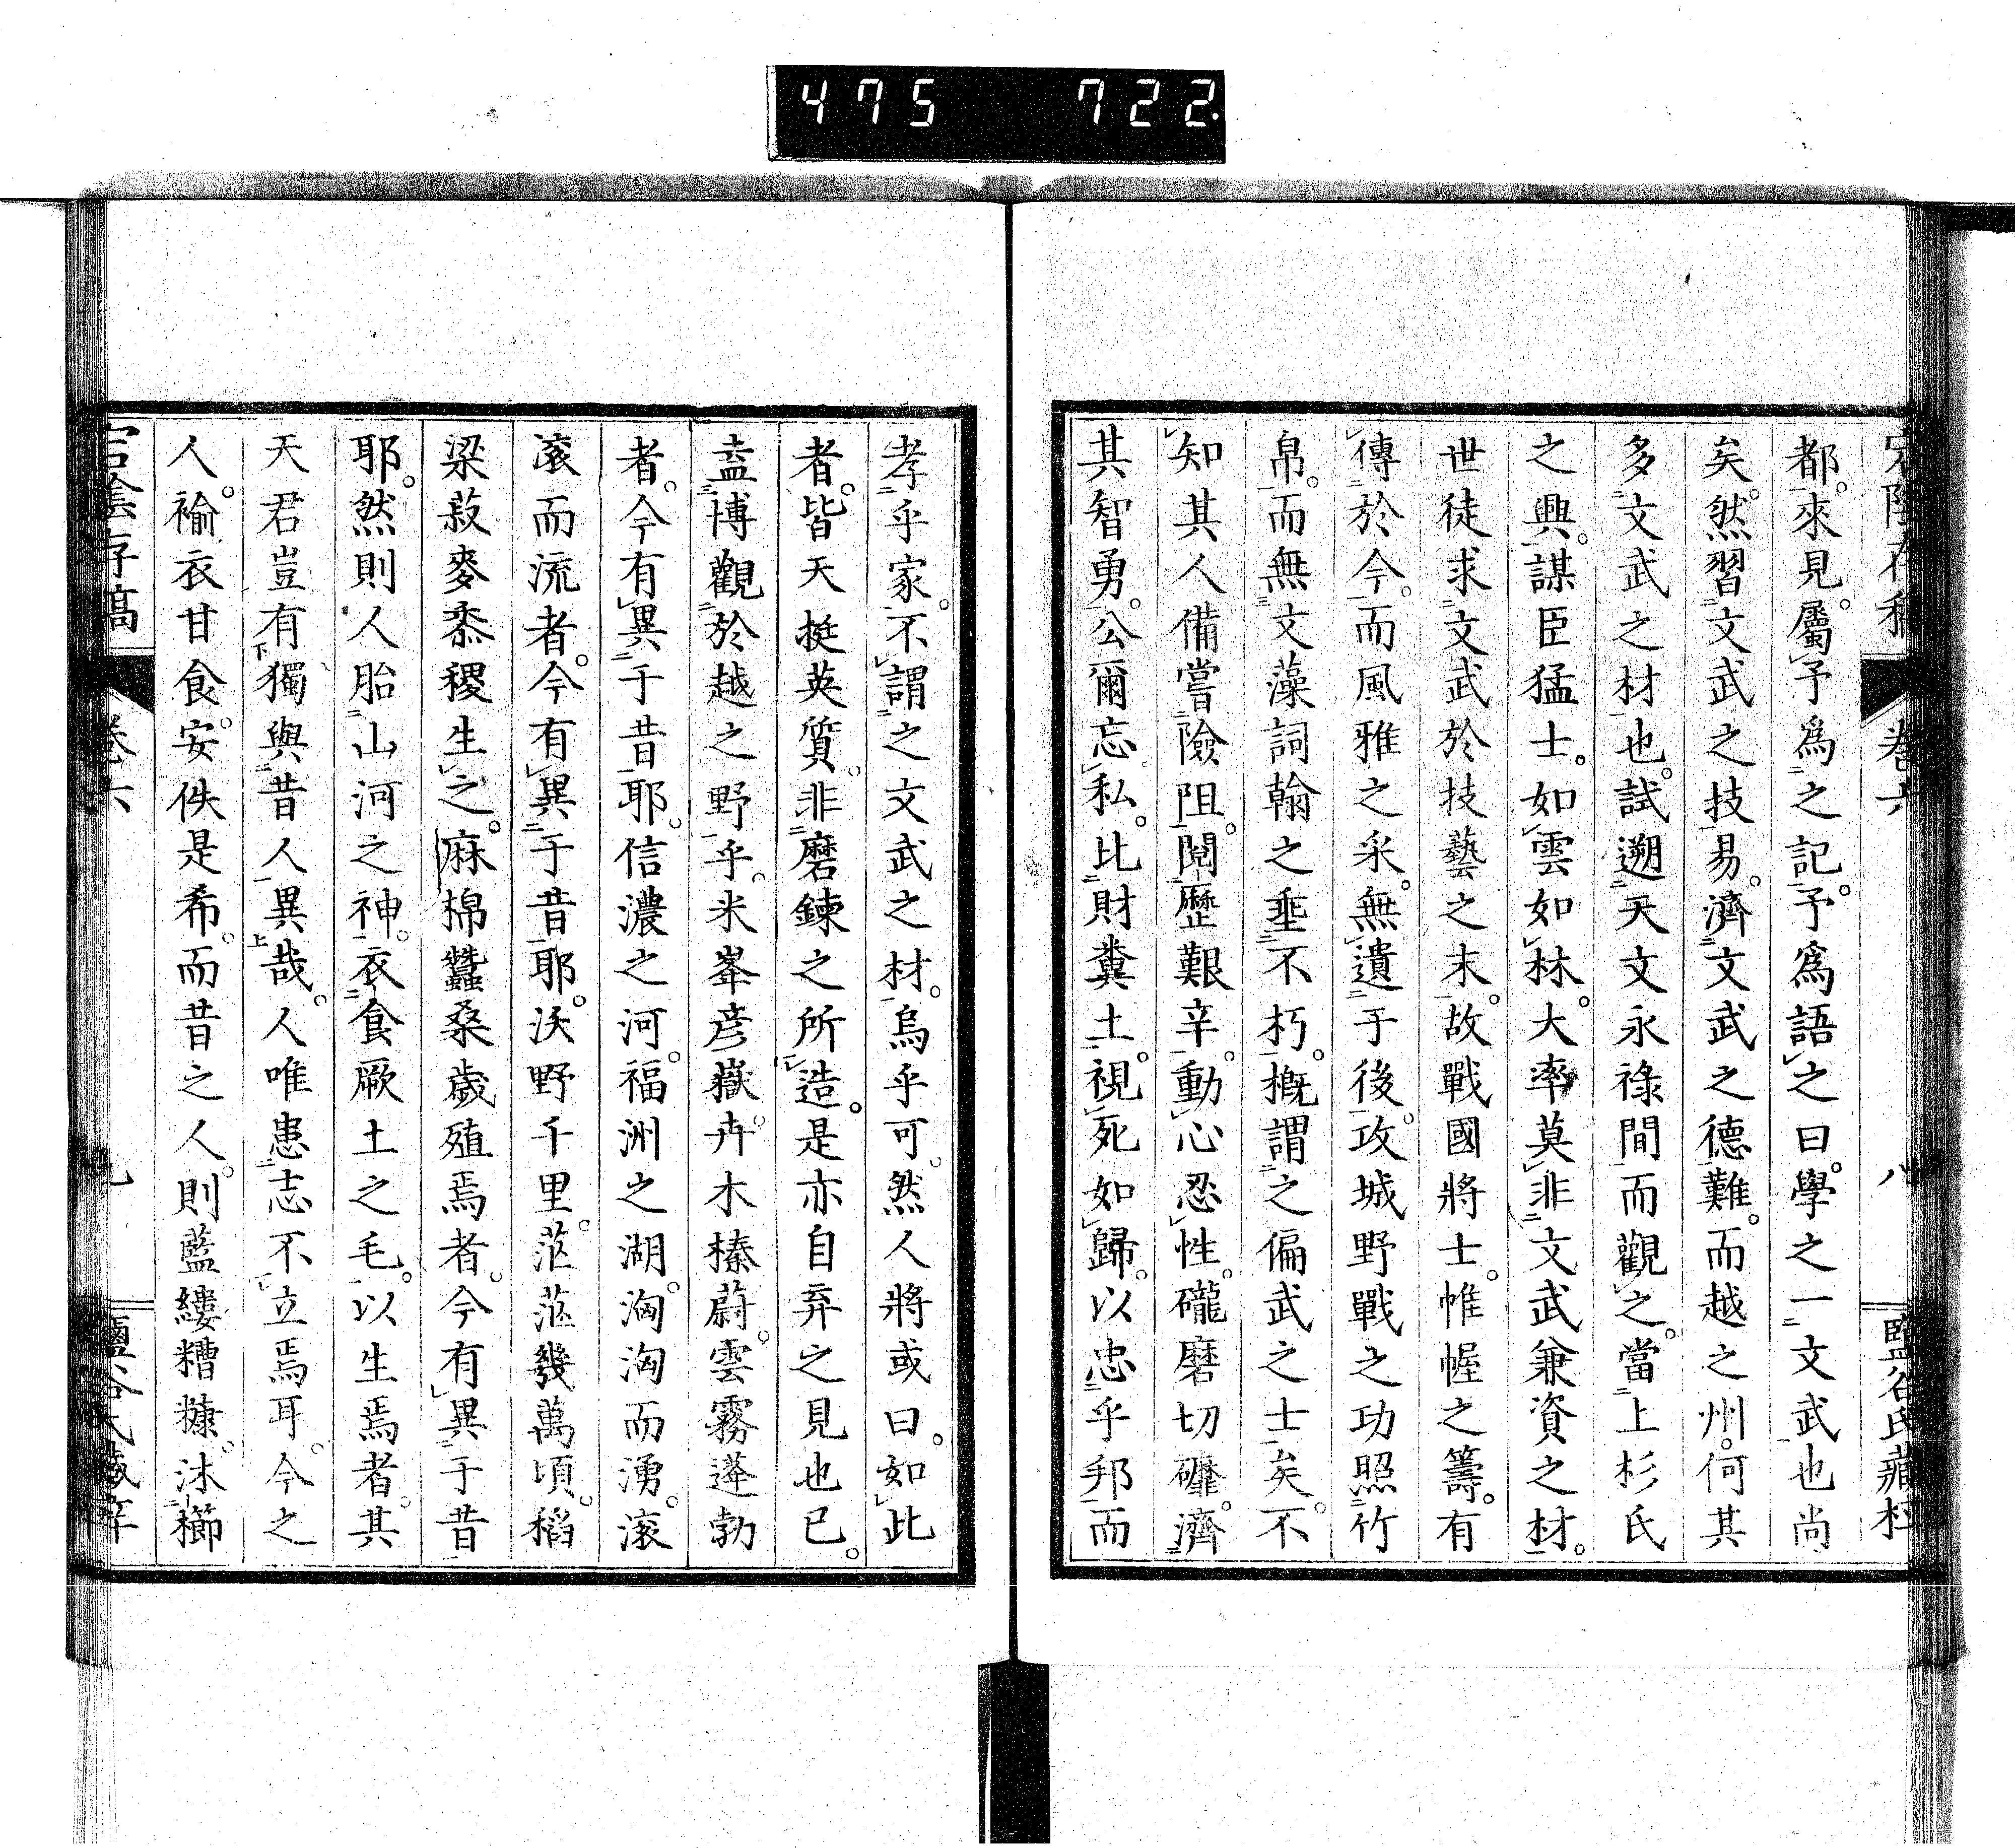 475 722
宕陰存稿 卷六 八 鹽谷氏藏梓
都。來見。屬予爲之記。予爲語之曰。學之一文武也尚
矣。然習文武之技易。濟文武之德難。而越之州。何其
多文武之材也。試遡天文永祿間而觀之。當上杉氏
之興。謀臣猛士。如雲如林。大率莫非文武兼資之材。
世徒求文武於技藝之末。故戰國將士。帷幄之籌。有
傳於今。而風雅之采。無遺于後。攻城野戰之功照竹
帛。而無文藻詞翰之埀不朽。概謂之偏武之士矣。不
知其人備嘗險阻。閱歷艱辛。動心忍性。礲磨切礳。濟
其智勇。公爾忘私。比財糞土。視死如歸。以忠乎邦而
孝乎家。不謂之文武之材。烏乎可。然人將或曰。如此
者。皆天挺英質。非磨鍊之所造。是亦自弃之見也已。
盍博觀於越之野乎。米峯彥嶽。卉木榛蔚。雲霧蓬勃
者。今有異于昔耶。信濃之河。福洲之湖。洶洶而湧。滚
滚而流者。今有異于昔耶。沃野千里。茫茫幾萬頃。稻
梁菽麥黍稷生之。麻棉蠶桑歲殖焉者。今有異于昔
耶。然則人胎山河之神。衣食厥土之毛。以生焉者。其
天君豈有獨與昔人異哉。人唯患志不立焉耳。今之
人。褕衣甘食。安佚是希。而昔之人。則藍縷糟糠。沐櫛
宕陰存稿 卷六 九 鹽谷氏藏梓